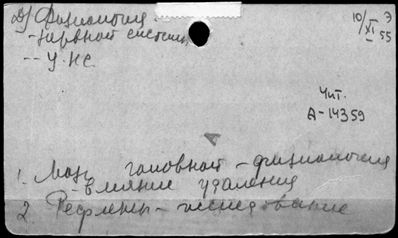 д) Физиология
- нервной системы
-- у. н с.
10/XI 55 Э
Чит.
А-14359
1. Мозг головной - физиология
- влияние удаления
2. Рефлексы - исследование